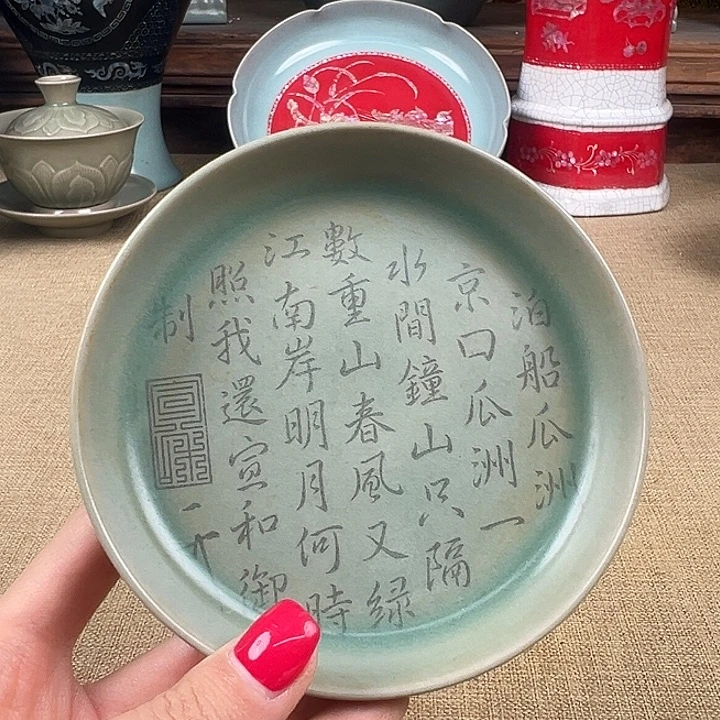 泊船瓜洲
京口瓜洲一
水間鐘山只隔
數重山春風又緑
江南岸明月何時
照我還宣和御
制